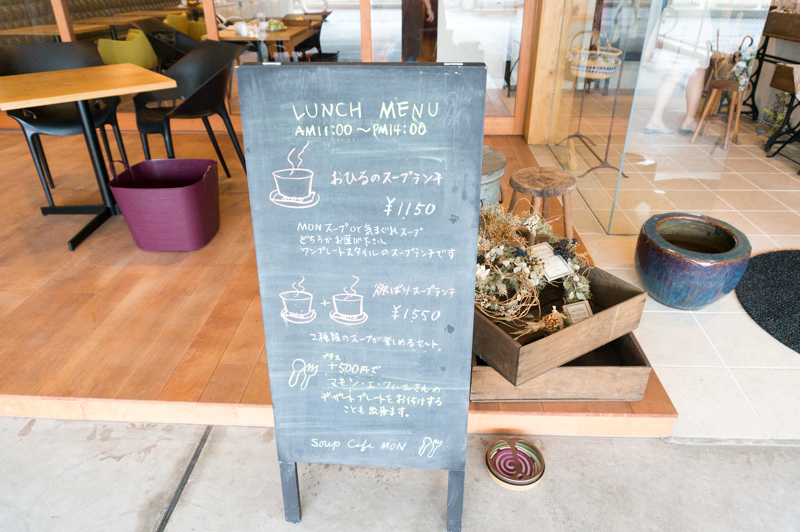 LUNCH MENU
AM11:00～PM14:00
おひるのスープランチ
¥1,150
MONスープor気まぐれスープ
どちらかお選び下さい
ワンプレートスタイルのスープランチです
+
欲ばりスープランチ
¥1,550
2種類のスープが楽しめるセット。
プラス
+500円で
マモン・エ・フィーユさんの
デザートプレートをお付けする
ことも出来ます。
Soup Cafe MON